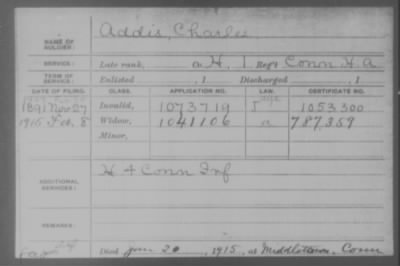 NAME OF SOLDIER: Addis, Charles
SERVICE: Late rank, Co. H, 1 Reg't Conn H. A
TERM OF SERVICE: Enlisted , 1 Discharged , 1
DATE OF FILING. CLASS. APPLICATION NO. LAW. CERTIFICATE NO.
1891 Nov 27 Invalid, 1073719 1053300
1915 Feb. 8 Widow, 1041106 a 787,359
Minor,
ADDITIONAL SERVICES: H 4 Conn Inf
REMARKS:
Died Jan 20, 1915, at Middletown, Conn